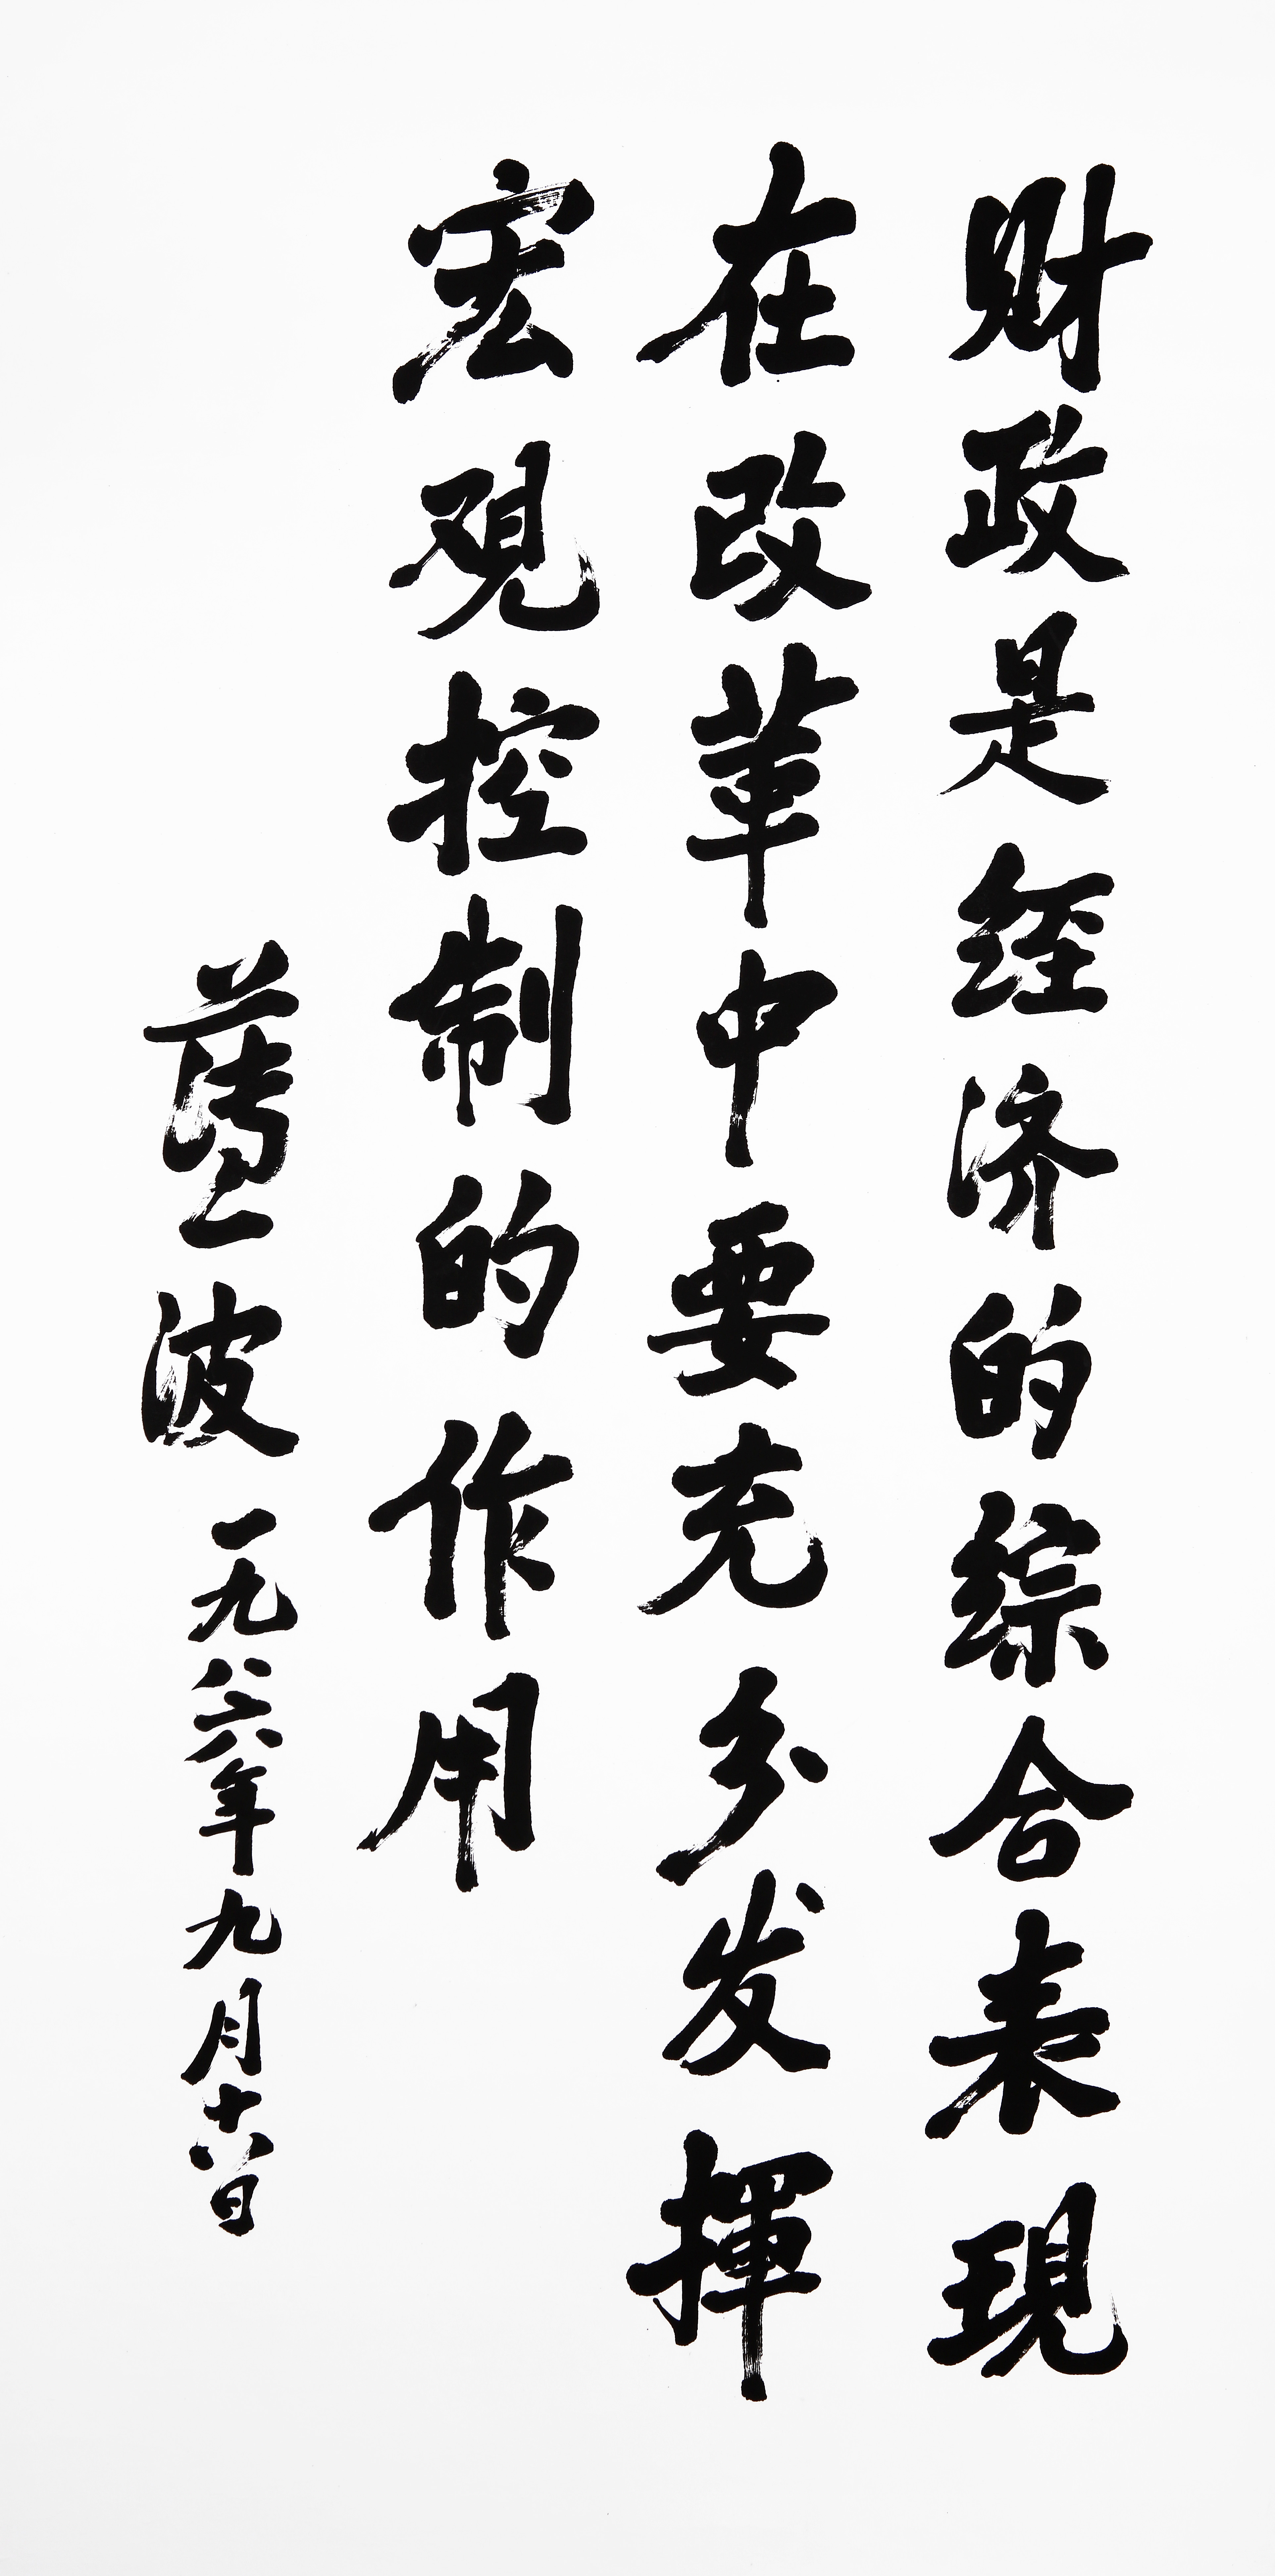 财政是经济的综合表现
在改革中要充分发揮
宏观控制的作用
薄一波 一九八六年九月十八日